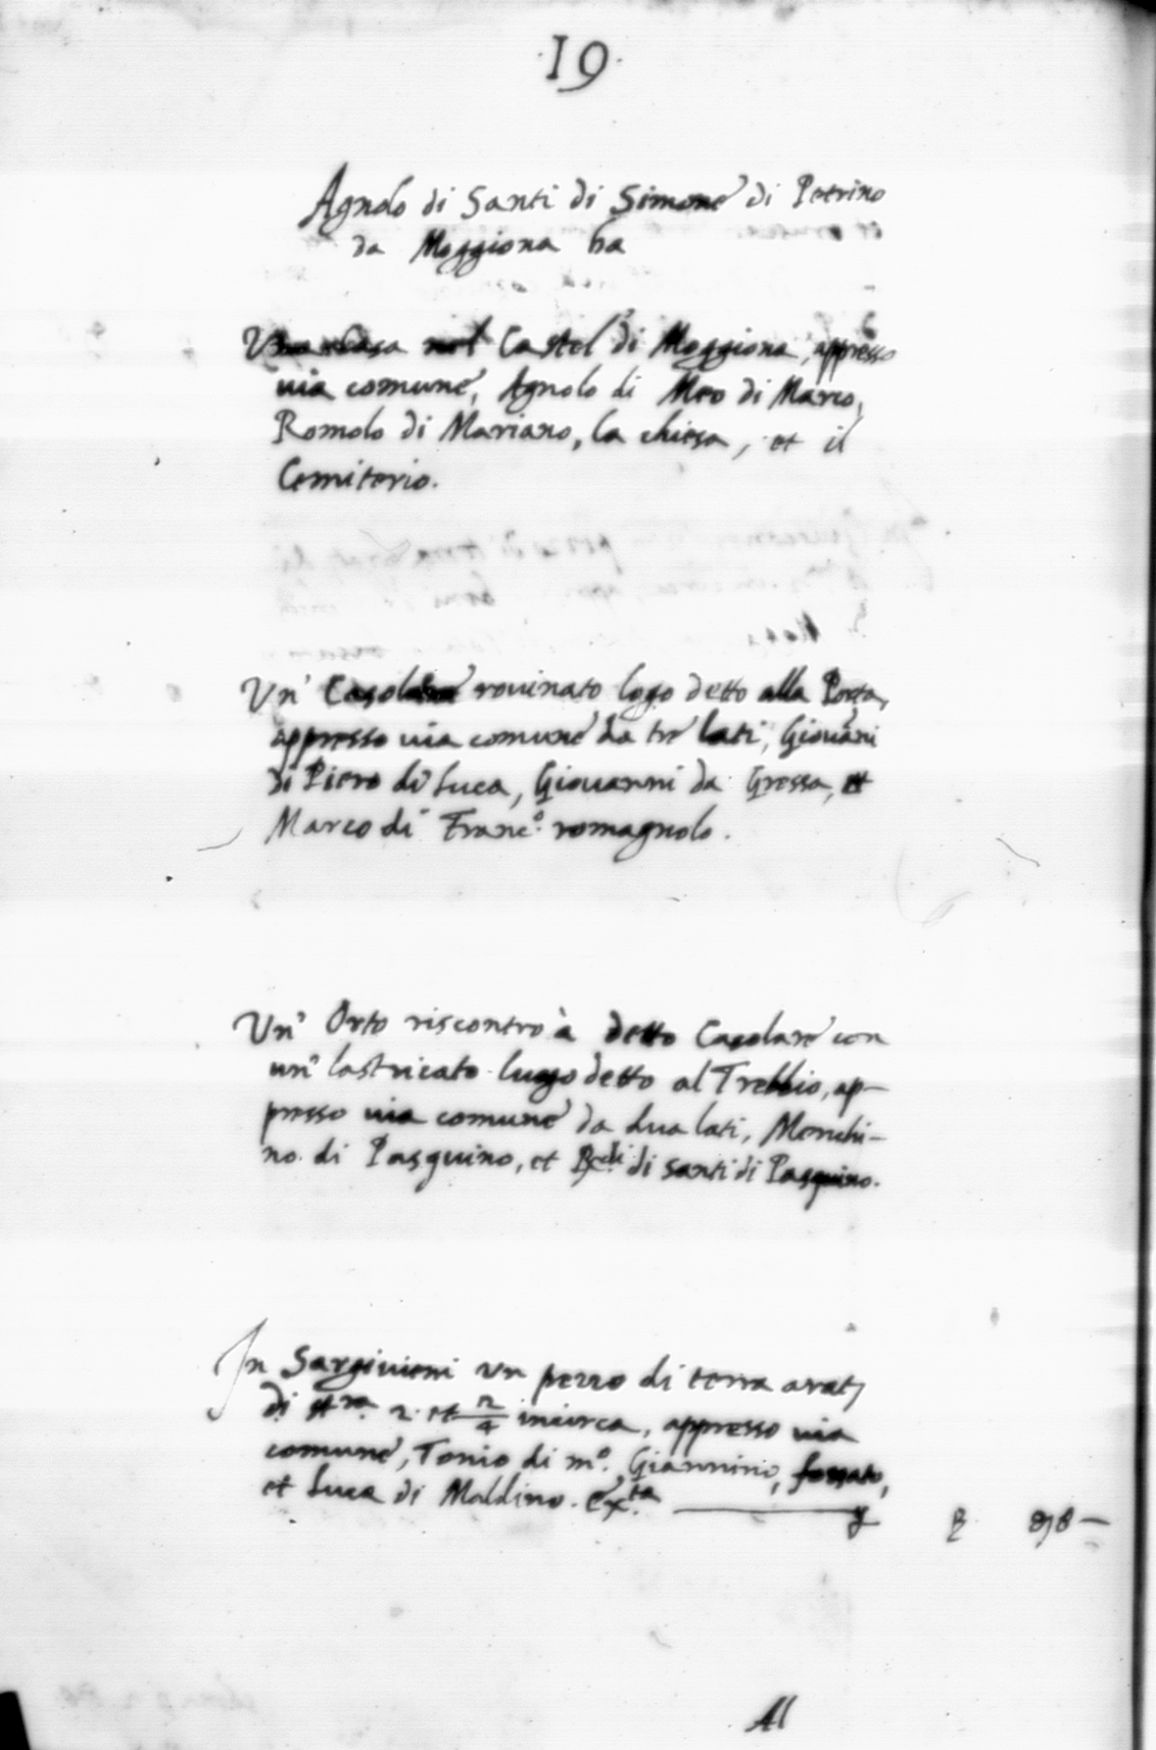 ·19·
Agnolo di Santi di Simone di Petrino
da Moggiona ha
Una Casa nel Castel di Moggiona, appresso
uia comune, Agnolo di Meo di Marco,
Romolo di Mariano, la chiesa, et il
Cemiterio.
Un' Casolare rouinato logo detto alla Porta,
appresso uia comune da tre lati, Giouāni
di Piero di Luca, Giouanni da Gressa, et
Marco di Franc.º romagnolo.
Un' Orto riscontro à detto Casolare con
un' lastricato luogo detto al Trebbio, ap-
presso uia comune da dua lati, Menchi-
no di Pasquino, et Redi di Santi di Pasquino.
In un pezzo di terra arat,
di st.ra 2. et incirca, appresso uia
comune, Tonio di m.º Giannino, fossato,
et Luca di Maldino.
Al